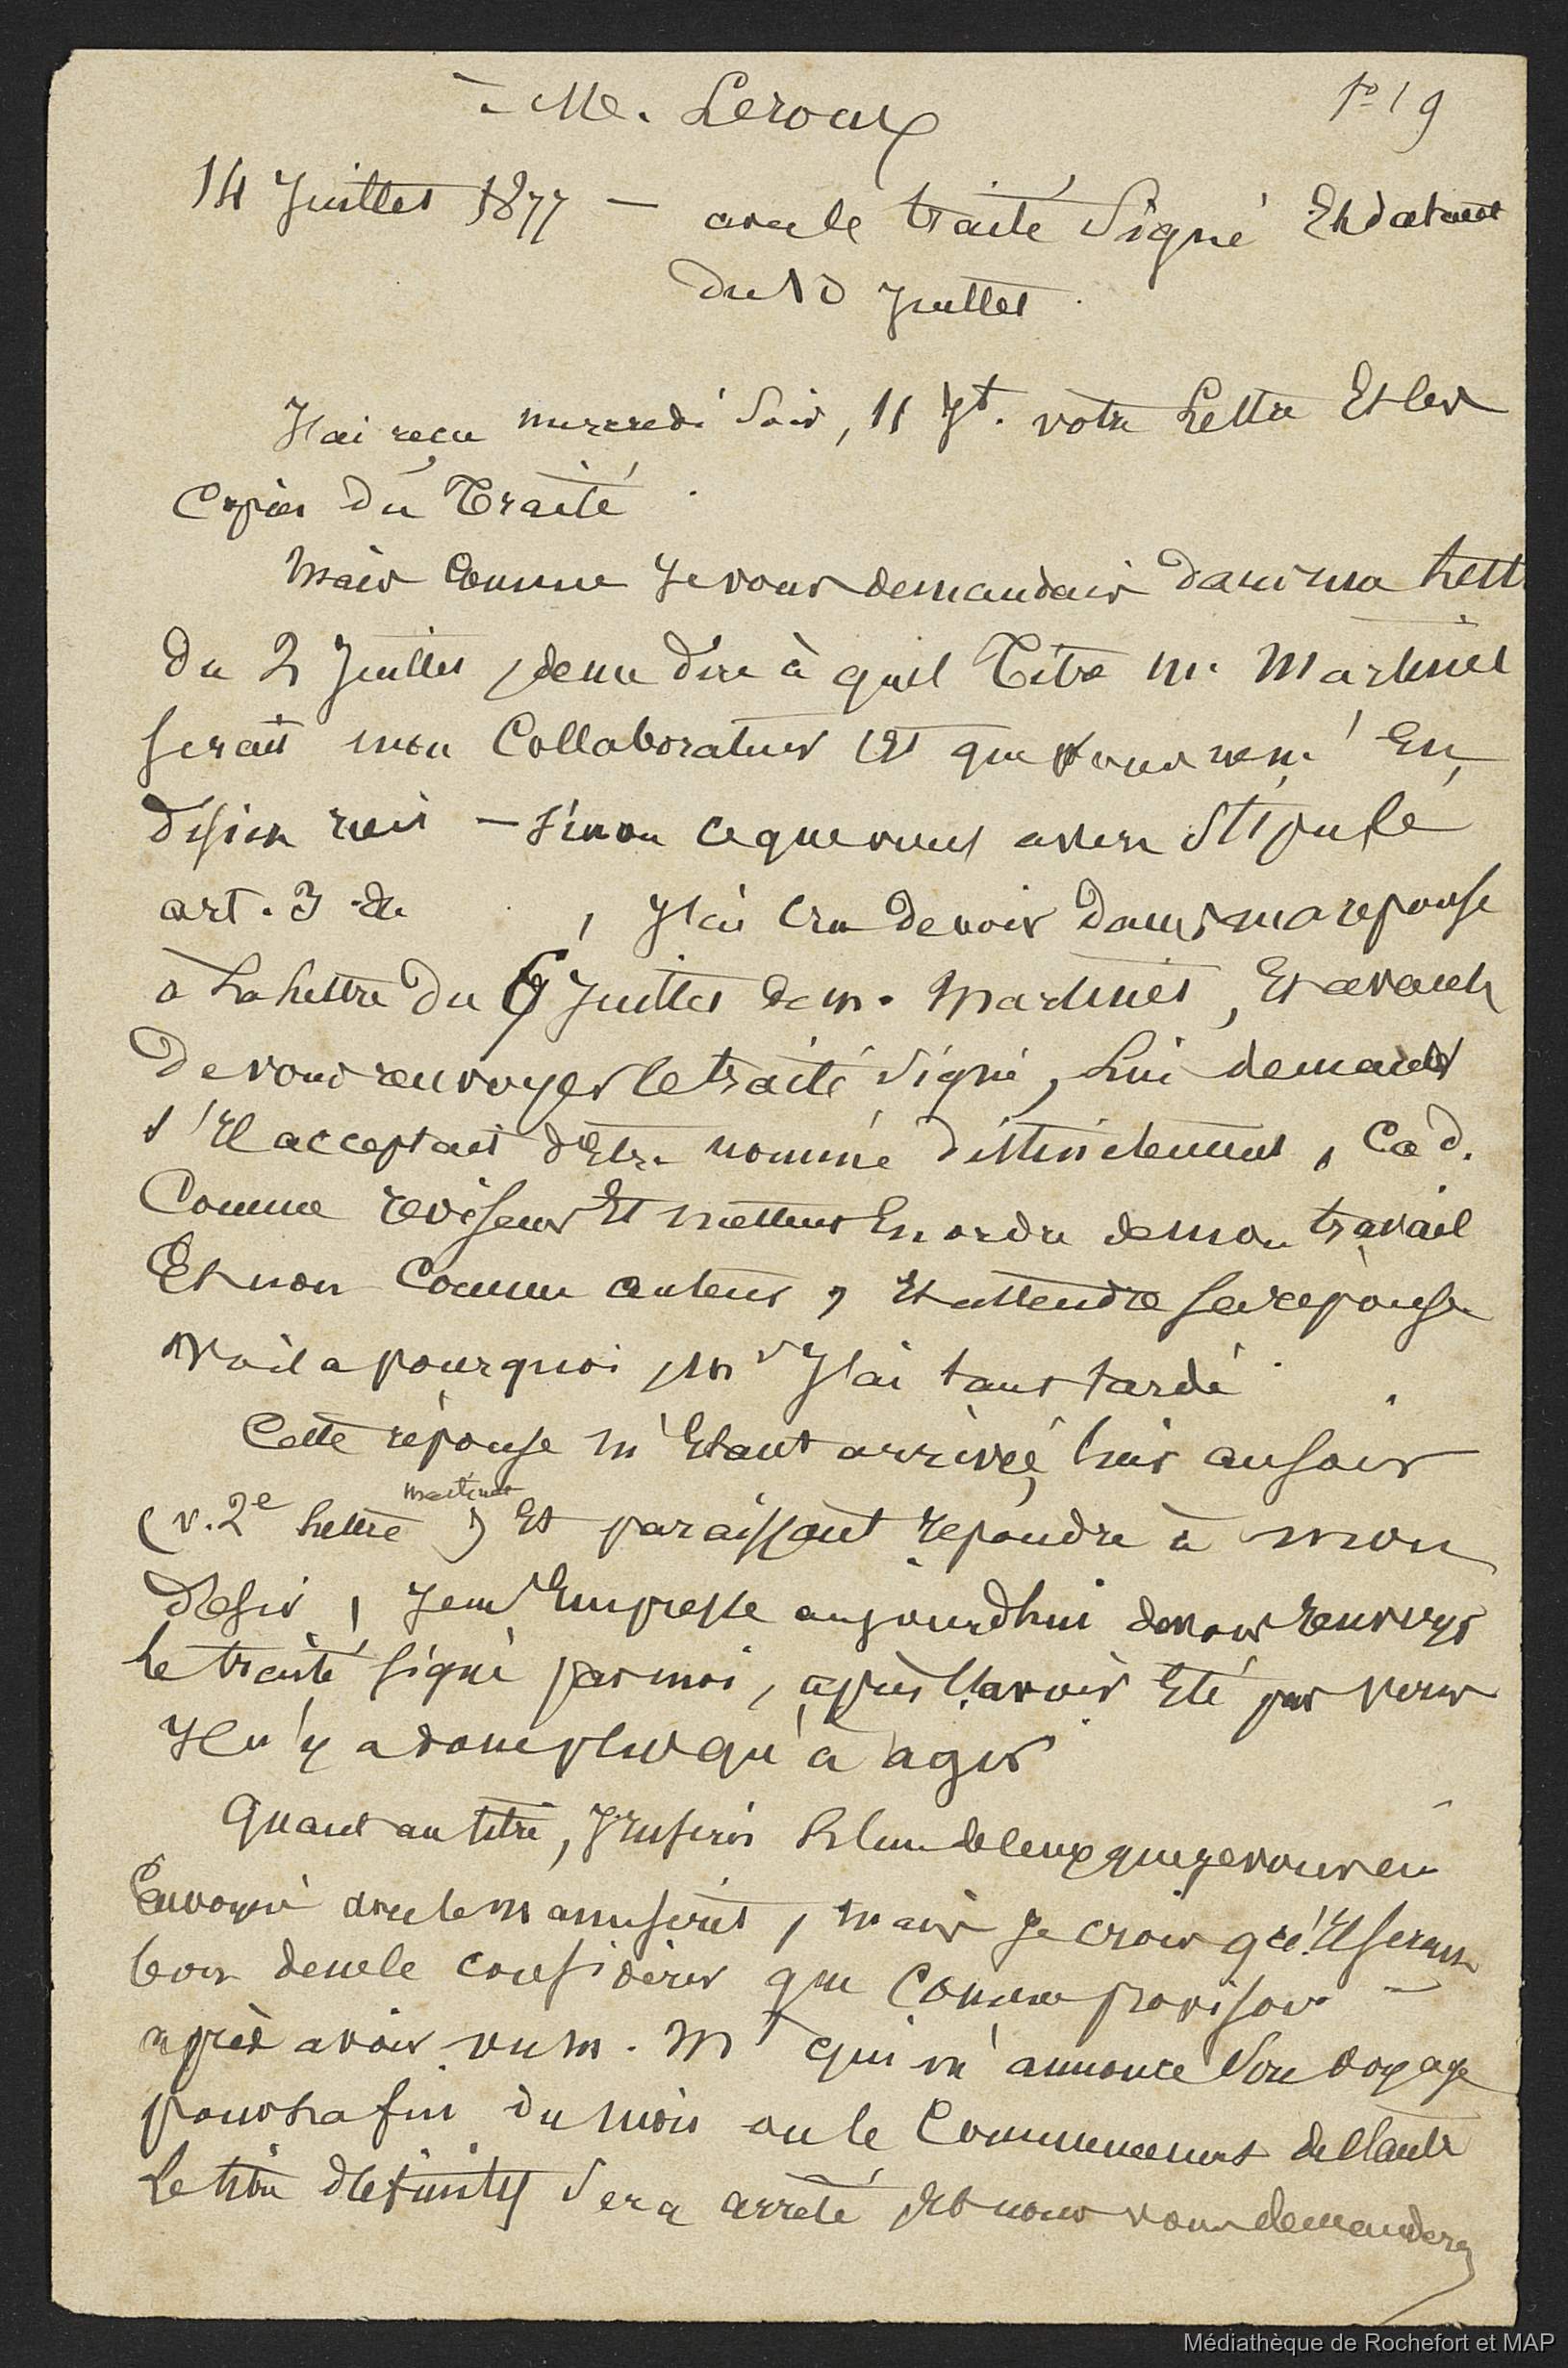 à Me. Leroux
fo 19
14 Juillet 1877 — avec le traité Signé Et datant
du 10 Juillet.
J'ai reçu mercredi Soir, 11 Jt. votre Lettre Et les
Copies du Traité.
Mais Comme Je vous demandais dans ma Lett
du 2 Juillet, de me dire à quel Titre M. Martinet
serait mon Collaborateur Et que vous ne m'En
disiez rien — sinon ce que vous avez Stipulé
art. 3 du , J'ai Cru devoir dans ma reponse
à La Lettre du 6 Juillet de M. Martinet, Et avant
De vous renvoyer le traité Signé, Lui demander
s'Il acceptait d'Etre nommé distinctement, Cad.
Comme reviseur Et metteur En ordre de mon travail
Et non Comme auteur, Et attendre sa réponse
Voilà pourquoi, Mr J'ai tant tardé.
Cette réponse m'Etant arrivée hier au soir
(v. 2e Lettre Martinet) Et paraissant répondre à mon
désir, Je m'Empresse aujourd'hui de vous renvoyer
Le traité signé par moi, après l'avoir Eté par vous
Il n'y a donc plus qu'à agir
Quant au titre, J'
Envoyé avec le Manuscrit, mais Je crois qu'Il serait
bon de ne le considérer que Comme provisoire —
après avoir vu M. Mt qui m'annonce Son voyage
pour La fin du mois ou le Commencement de l'autre
Le titre définitif Sera arrêté Et nous vous demanderons
Médiathèque de Rochefort et MAP